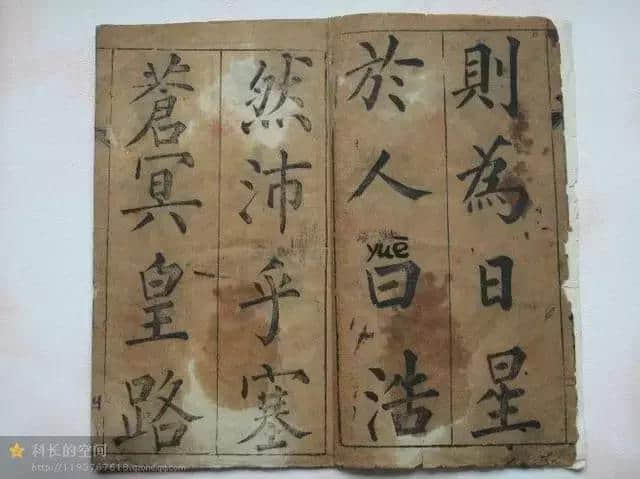 則為日星
於人曰浩
yuē
然沛乎塞
蒼冥皇路
科长的空间
http://1193767618.qzone.qq.com